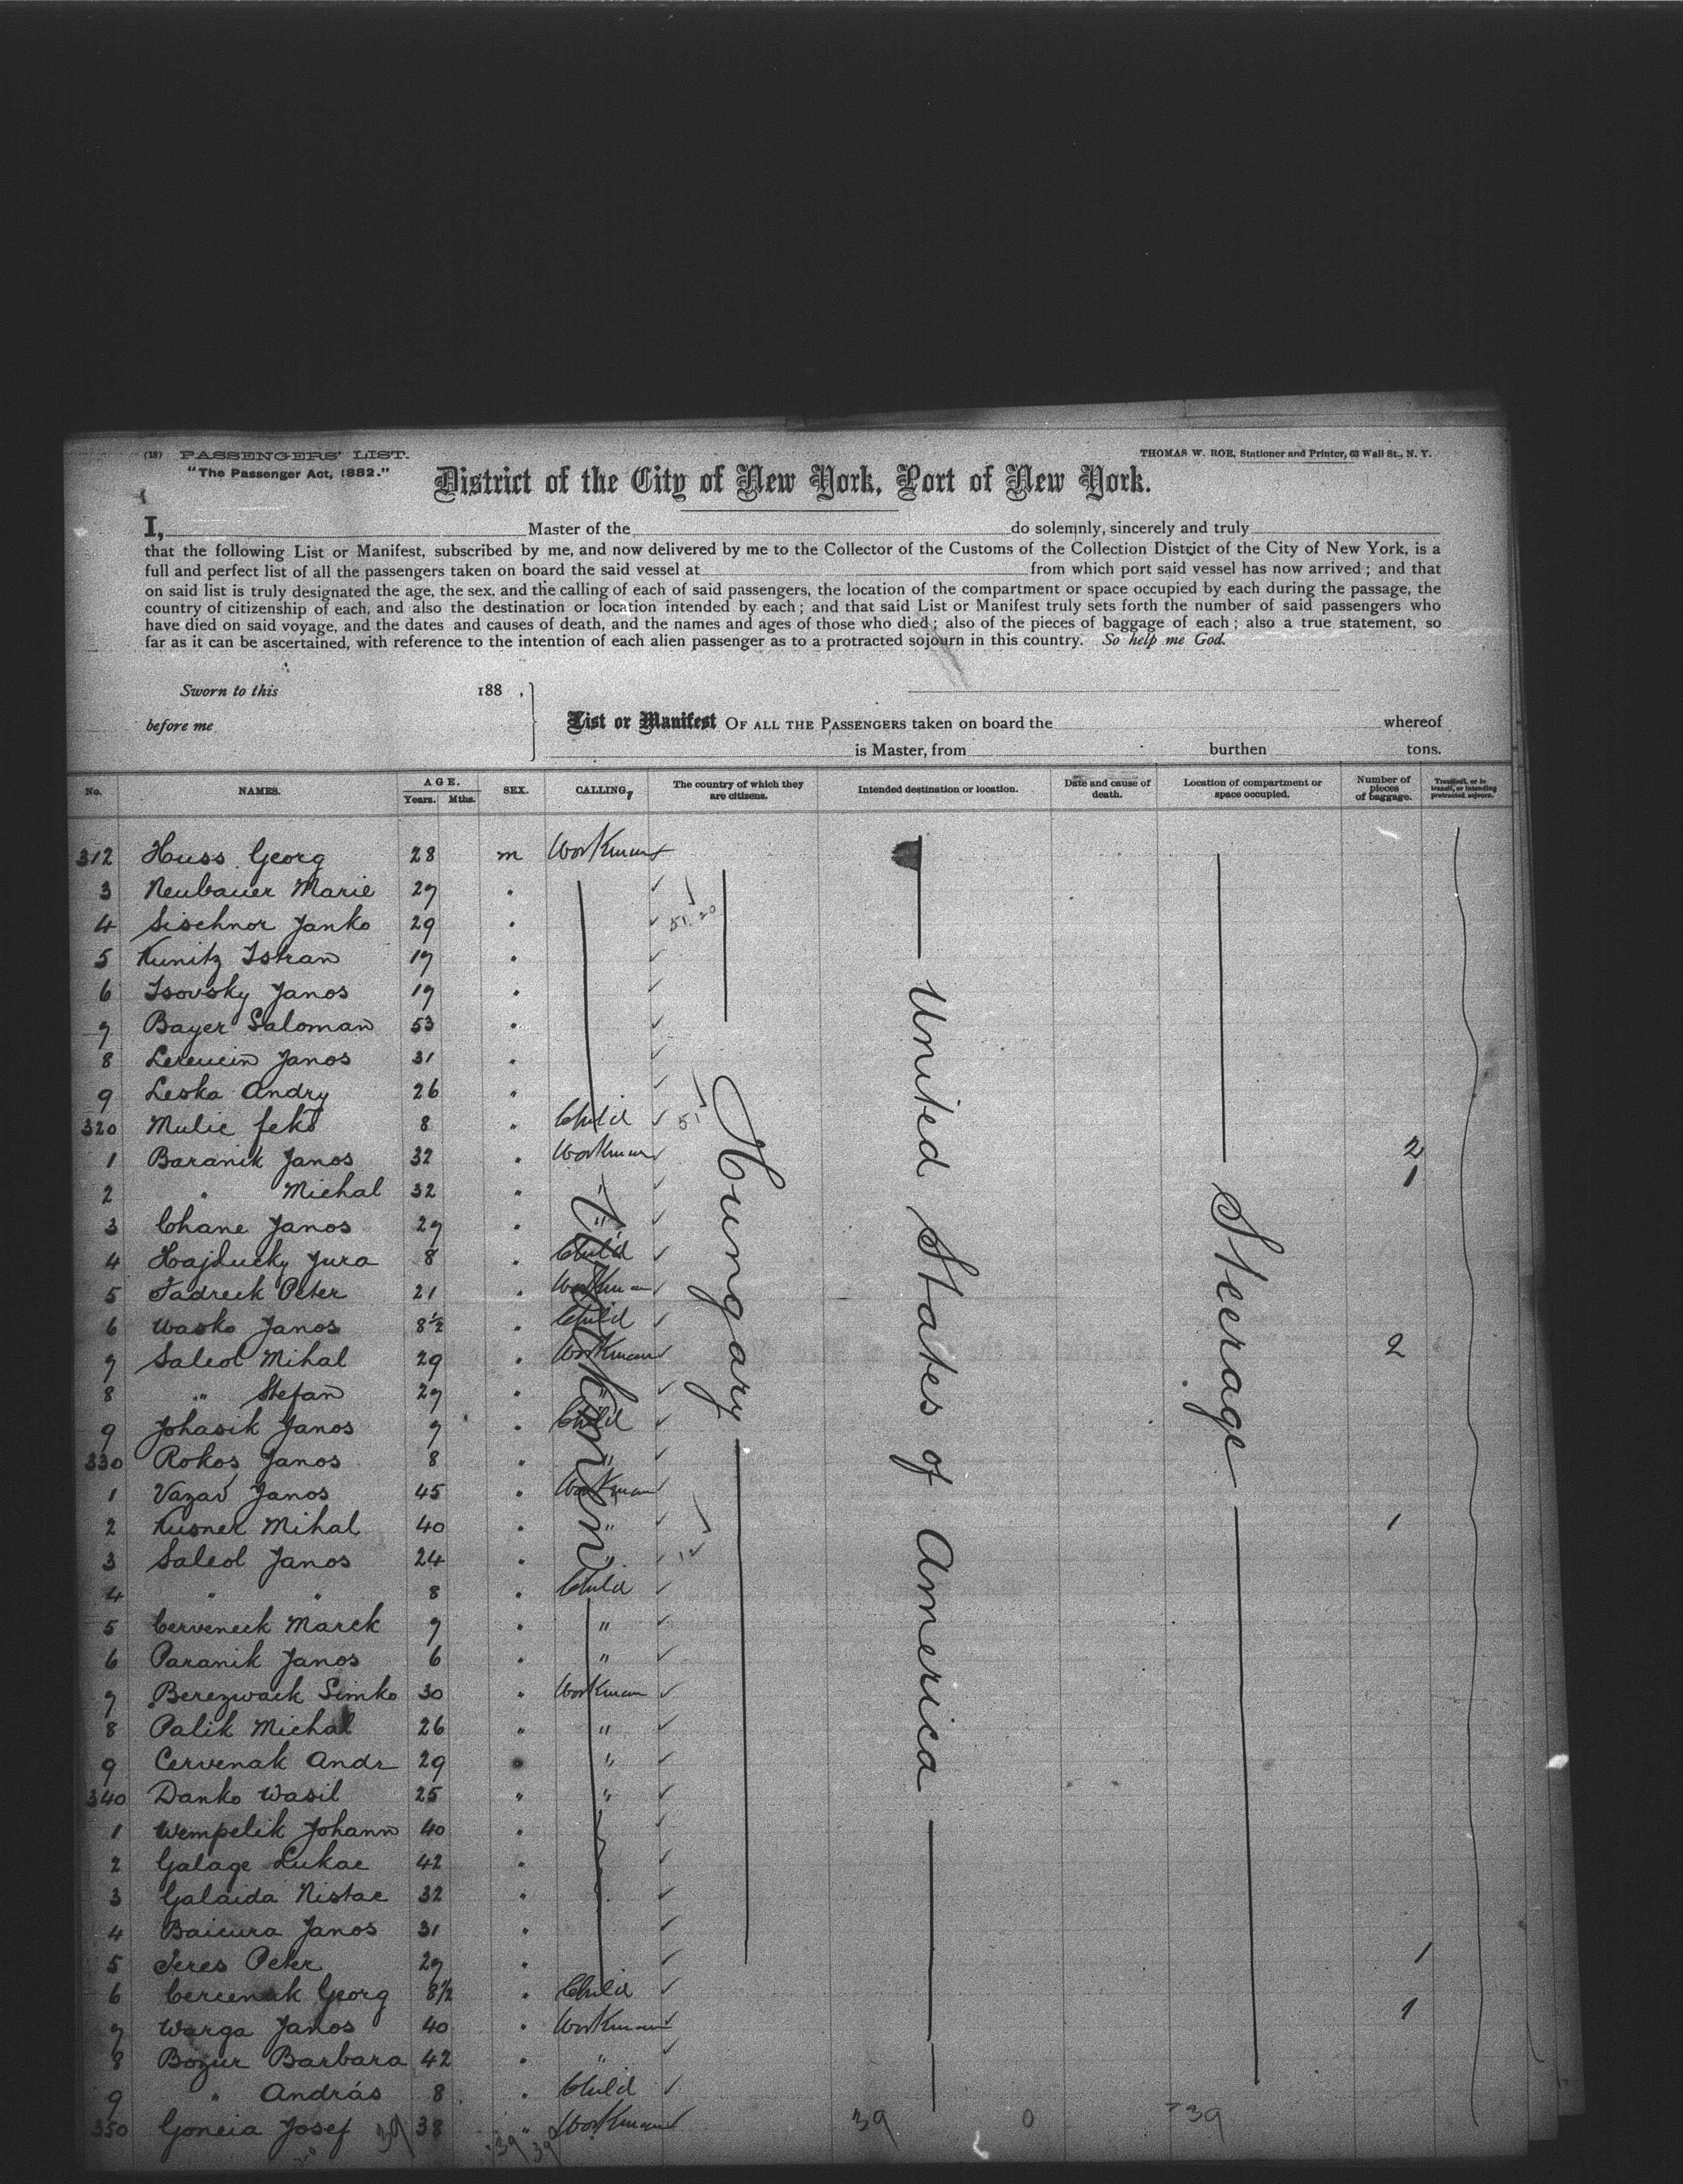 (18) PASSENGERS' LIST.
"The Passenger Act, 1882."
THOMAS W. ROE, Stationer and Printer, 63 Wall St., N. Y.
District of the City of New York, Port of New York.
I, Master of the do solemnly, sincerely and truly
that the following List or Manifest, subscribed by me, and now delivered by me to the Collector of the Customs of the Collection District of the City of New York, is a
full and perfect list of all the passengers taken on board the said vessel at from which port said vessel has now arrived; and that
on said list is truly designated the age, the sex, and the calling of each of said passengers, the location of the compartment or space occupied by each during the passage, the
country of citizenship of each, and also the destination or location intended by each; and that said List or Manifest truly sets forth the number of said passengers who
have died on said voyage, and the dates and causes of death, and the names and ages of those who died; also of the pieces of baggage of each; also a true statement, so
far as it can be ascertained, with reference to the intention of each alien passenger as to a protracted sojourn in this country. So help me God.
Sworn to this 188 ,
before me
List or Manifest OF ALL THE PASSENGERS taken on board the whereof
is Master, from burthen tons.
No. NAMES. AGE. Years. Mths. SEX. CALLING, The country of which they are citizens. Intended destination or location. Date and cause of death. Location of compartment or space occupied. Number of pieces of baggage. Transient, or in transit, or intending protracted sojourn.
312 Huss Georg 28 m Workman
3 Neubauer Marie 27 "
4 Sischnor Janko 29 " 51.20
5 Kunitz Istran 17 "
6 Isovsky Janos 19 "
7 Bayer Saloman 53 "
8 Janos 31 "
9 Leska Andry 26 "
320 Mulic feko 8 " Child 51
1 Baranik Janos 32 " Workman 2
2 " Michal 32 " " 1
3 Chane Janos 27 " "
4 Hajducky Jura 8 " Child
5 Tadreck Peter 21 " Workman
6 Wasko Janos 8½ " Child
7 Saleol Mihal 29 " Workman 2
8 " Stefan 27 " "
9 Johasik Janos 7 " Child
330 Rokos Janos 8 " "
1 Vazav Janos 45 " Workman
2 Kusner Mihal 40 " " 1
3 Saleol Janos 24 " "
4 " " 8 " Child
5 Cerveneck Marek 7 " "
6 Paranik Janos 6 " "
7 Berezwack Simko 30 " Workman
8 Palik Michal 26 " "
9 Cervenak Andr 29 " "
340 Danko Wasil 25 " "
1 Wempelik Johann 40 "
2 Galage Lukac 42 "
3 Galaida Nistac 32 "
4 Baicura Janos 31 "
5 Feres Peter 27 " 1
6 Georg 8½ " Child
7 Warga Janos 40 " Workman 1
8 Bozur Barbara 42 " "
9 " András 8 " Child
350 Goncia Josef 38 " Workman
Hungary
United States of America
Steerage
39 39 39 39 0 39